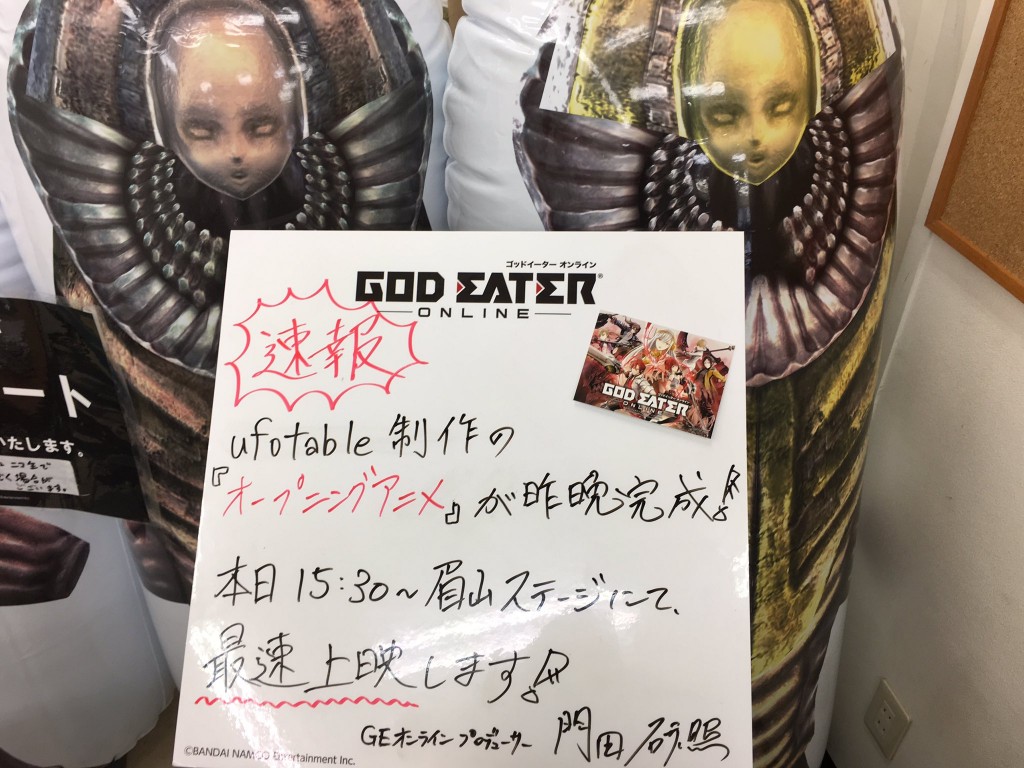 ート
いたします。
ゴッドイーター オンライン
GOD EATER®
ONLINE
速報
GOD EATER
ONLINE
ufotable 制作の
『オープニングアニメ』が昨晩完成!!
本日 15:30~眉山ステージにて、
最速上映します!!
GEオンライン プロデューサー 門田 研照
©BANDAI NAMCO Entertainment Inc.